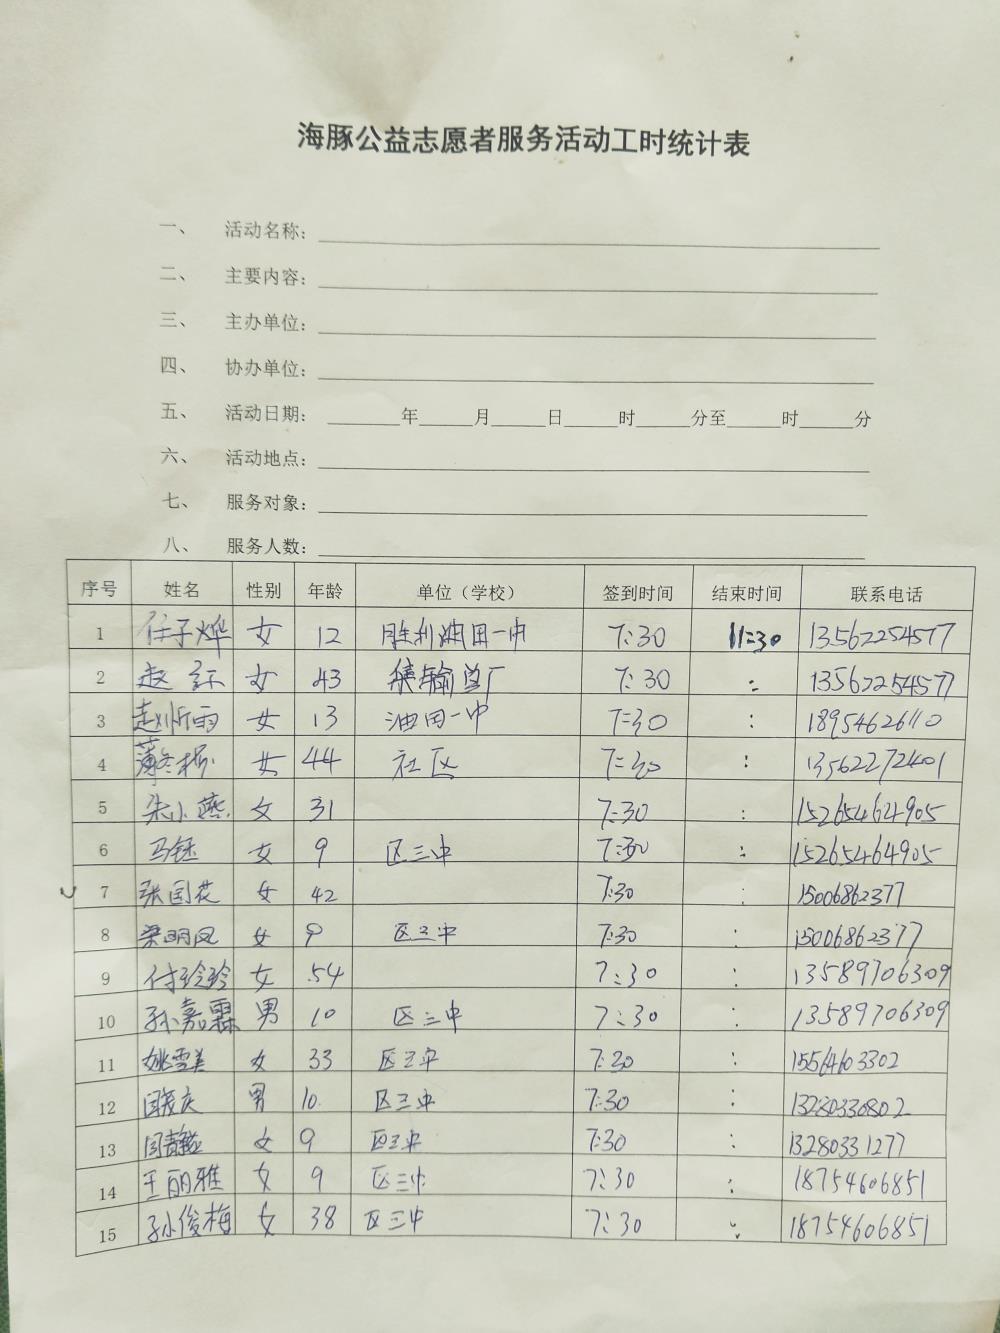 海豚公益志愿者服务活动工时统计表
一、 活动名称：
二、 主要内容：
三、 主办单位：
四、 协办单位：
五、 活动日期： 年 月 日 时 分至 时 分
六、 活动地点：
七、 服务对象：
八、 服务人数：
序号 姓名 性别 年龄 单位（学校） 签到时间 结束时间 联系电话
1 任子烨 女 12 胜利油田一中 7:30 11:30 13562254577
2 赵红 女 43 输总厂 7:30 : 13562254577
3 赵忻雨 女 13 油田一中 7:30 : 18954626110
4 薄冬 女 44 社区 7:30 : 13562272401
5 朱小燕 女 31 7:30 : 15265464905
6 马钰 女 9 区三中 7:30 : 15265464905
7 张国花 女 42 7:30 : 15006862377
8 梁明凤 女 9 区三中 7:30 : 15006862377
9 付玲玲 女 54 7:30 : 13589706309
10 孙嘉霖 男 10 区三中 7:30 : 13589706309
11 姚雪美 女 33 区三中 7:30 : 15564603302
12 男 10 区三中 7:30 : 13280330802
13 女 9 区三中 7:30 : 13280331277
14 王丽雅 女 9 区三中 7:30 : 18754606851
15 孙俊梅 女 38 区三中 7:30 : 18754606851